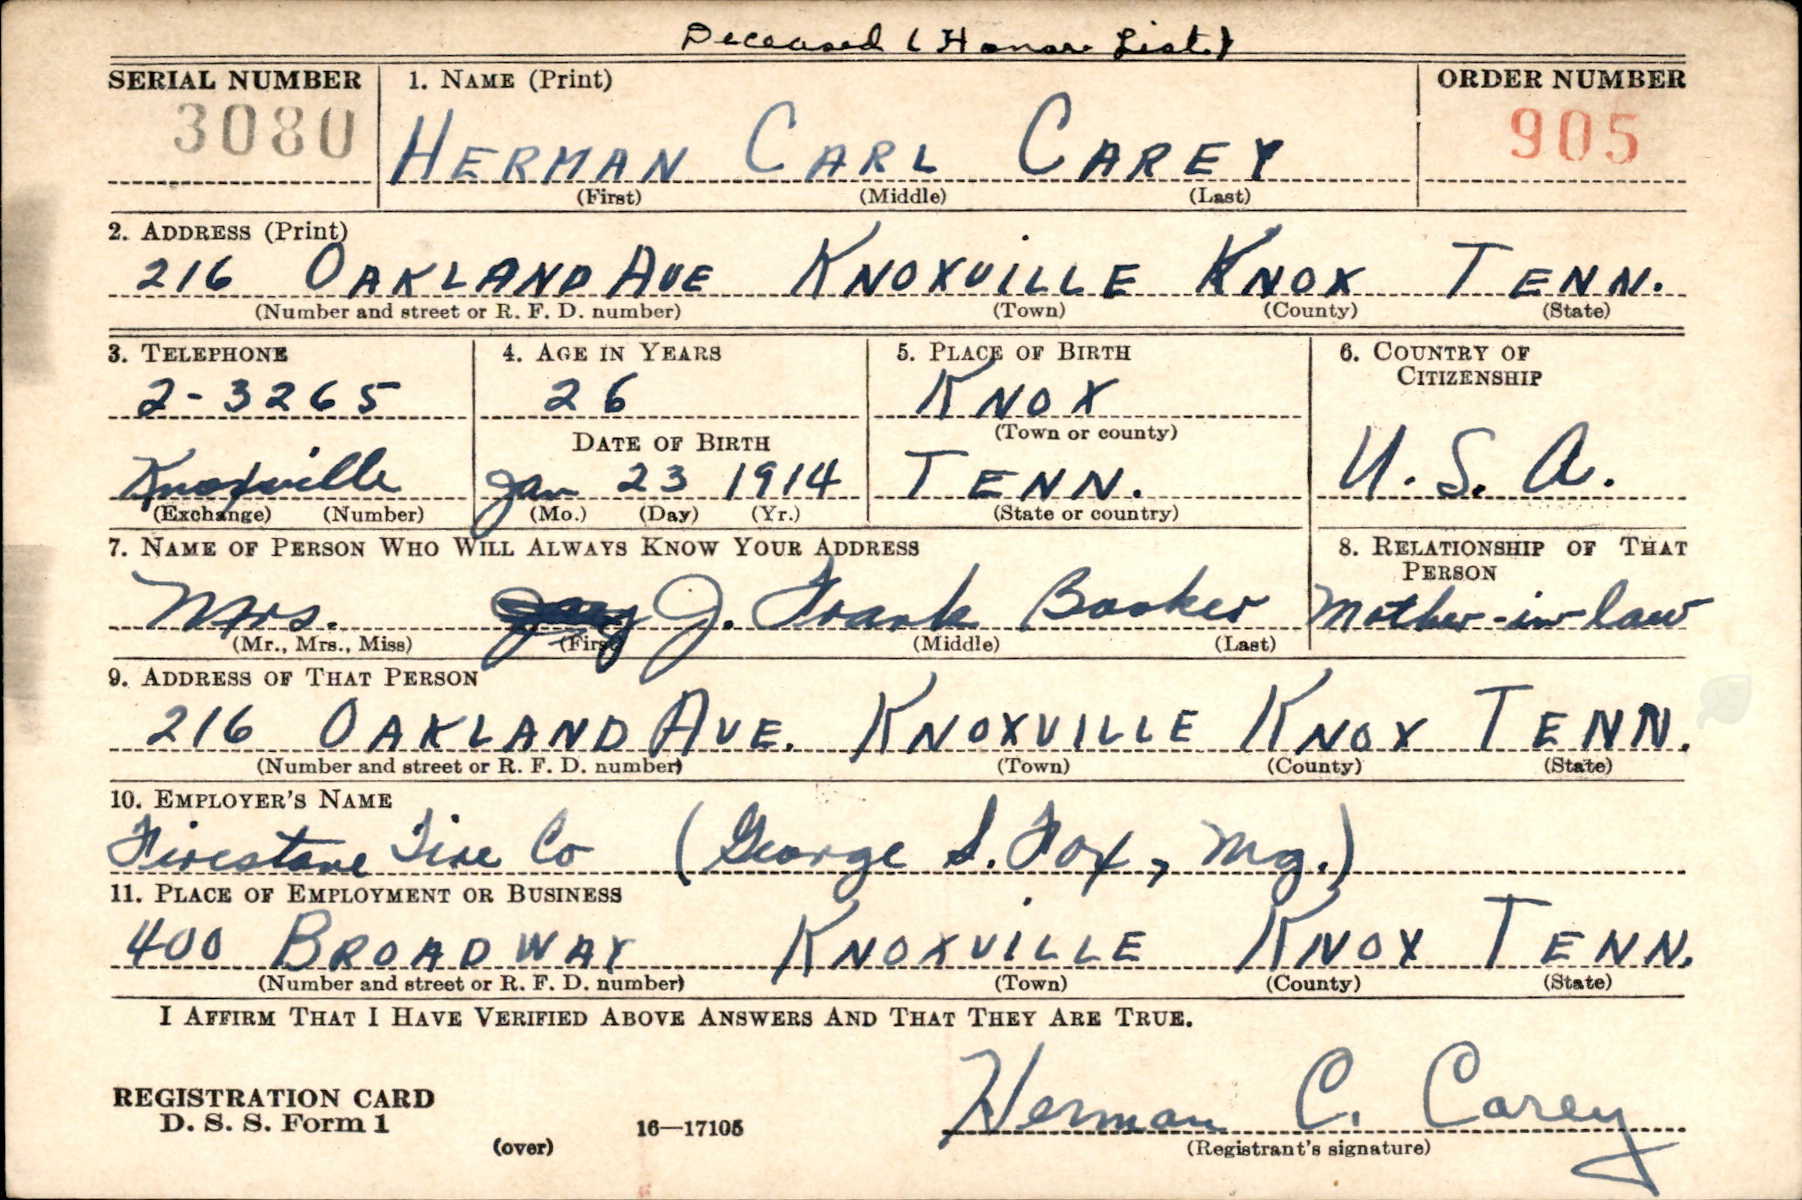 Deceased (Honor List)
SERIAL NUMBER 1. NAME (Print) ORDER NUMBER
3080 HERMAN CARL CAREY 905
(First) (Middle) (Last)
2. ADDRESS (Print)
216 OAKLAND AVE KNOXVILLE KNOX TENN.
(Number and street or R. F. D. number) (Town) (County) (State)
3. TELEPHONE 4. AGE IN YEARS 5. PLACE OF BIRTH 6. COUNTRY OF
CITIZENSHIP
2-3265 26 KNOX
DATE OF BIRTH (Town or county)
Knoxville Jan 23 1914 TENN. U.S.A.
(Exchange) (Number) (Mo.) (Day) (Yr.) (State or country)
7. NAME OF PERSON WHO WILL ALWAYS KNOW YOUR ADDRESS 8. RELATIONSHIP OF THAT
PERSON
Mrs. J. Frank Booker Mother-in-law
(Mr., Mrs., Miss) (First) (Middle) (Last)
9. ADDRESS OF THAT PERSON
216 OAKLAND AVE. KNOXVILLE KNOX TENN.
(Number and street or R. F. D. number) (Town) (County) (State)
10. EMPLOYER'S NAME
Firestone Tire Co (George S. Fox, Mg.)
11. PLACE OF EMPLOYMENT OR BUSINESS
400 BROADWAY KNOXVILLE KNOX TENN.
(Number and street or R. F. D. number) (Town) (County) (State)
I AFFIRM THAT I HAVE VERIFIED ABOVE ANSWERS AND THAT THEY ARE TRUE.
REGISTRATION CARD
D. S. S. Form 1
Herman C. Carey
(over) 16—17105 (Registrant's signature)